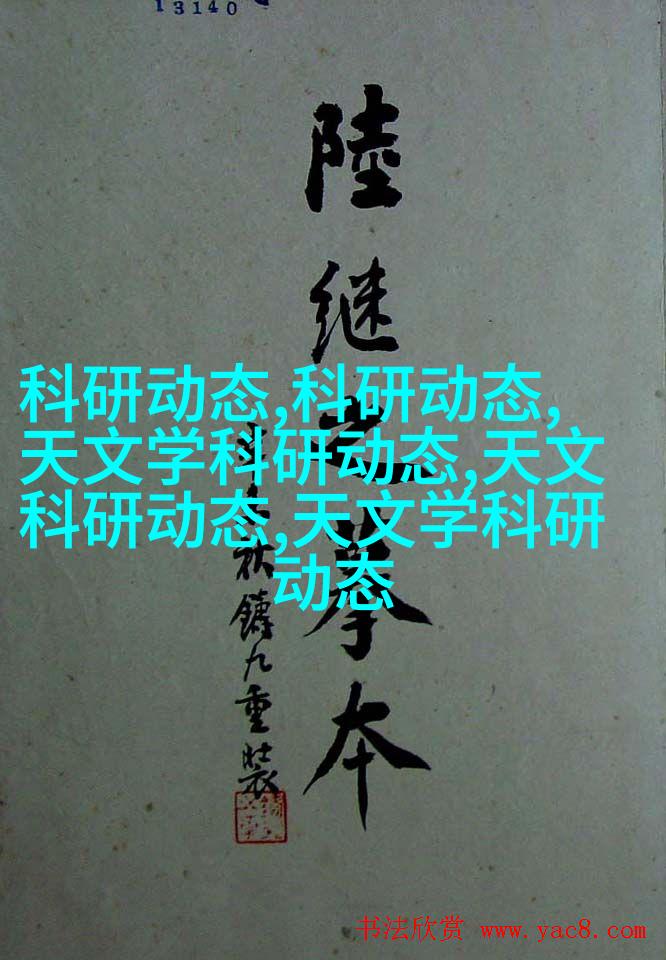 13140
陸継之摹本
秋鑄九重裝
科研动态,科研动态,
天文学科研动态,天文
科研动态,天文学科研
动态
书法欣赏 www.yac8.com